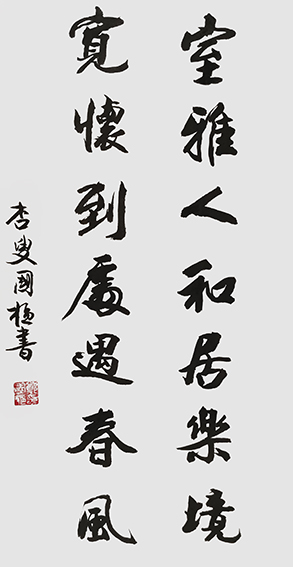 室雅人和居樂境
寬懷到處遇春風
杏叟國極書